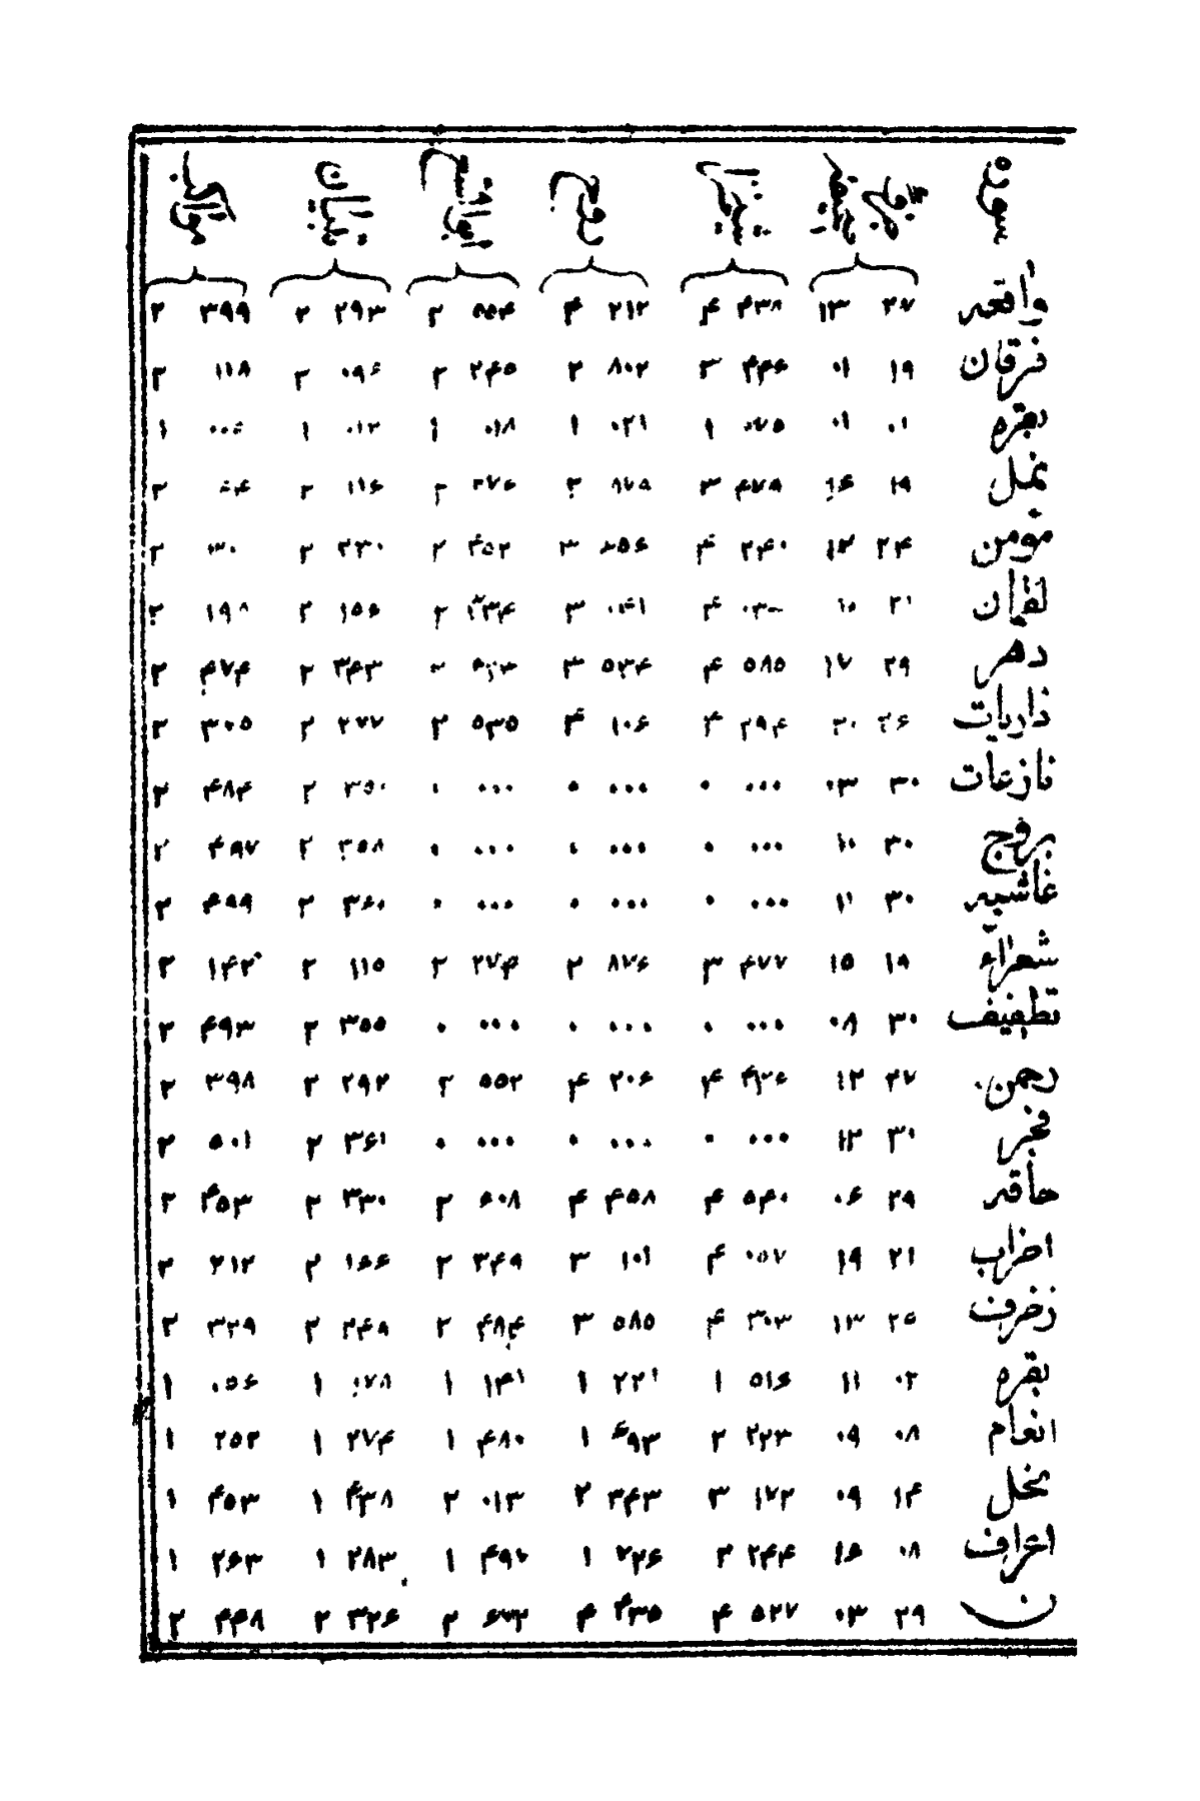 سوره
واقعه ۲۷ ۱۳ ۴۳۸ ۴ ۲۱۲ ۴ ۵۵۴ ۲ ۲۹۳ ۲ ۳۹۹ ۲
فرقان ۱۹ ۰۱ ۴۴۶ ۳ ۸۰۲ ۲ ۲۴۵ ۲ ۰۹۶ ۲ ۱۱۸ ۲
بقره ۰۱ ۰۱ ۰۷۵ ۱ ۰۲۱ ۱ ۰۱۸ ۱ ۰۱۲ ۱ ۰۰۶ ۱
نمل ۱۹ ۱۶ ۴۷۹ ۳ ۸۷۸ ۲ ۲۷۶ ۲ ۱۱۶ ۲ ۲
مؤمن ۲۴ ۱۲ ۲۴۰ ۴ ۳ ۴۵۲ ۲ ۲۳۰ ۲ ۲
لقمان ۲۱ ۱۰ ۴ ۰۴۱ ۳ ۳۳۴ ۲ ۱۵۶ ۲ ۱۹۸ ۲
دهر ۲۹ ۱۷ ۵۸۵ ۴ ۵۳۴ ۳ ۳۴۳ ۲ ۴۷۴ ۲
ذاریات ۲۶ ۲۰ ۲۹۴ ۴ ۱۰۶ ۴ ۵۳۵ ۲ ۲۷۷ ۲ ۳۰۵ ۲
نازعات ۳۰ ۰۳ ۰۰۰ ۰ ۰۰۰ ۰ ۰۰۰ ۰ ۳۵۰ ۲ ۴۸۴ ۲
بروج ۳۰ ۱۰ ۰۰۰ ۰ ۰۰۰ ۰ ۰۰۰ ۰ ۳۵۸ ۲ ۴۹۷ ۲
غاشیه ۳۰ ۱۱ ۰۰۰ ۰ ۰۰۰ ۰ ۰۰۰ ۰ ۳۶۰ ۲ ۴۹۹ ۲
شعراء ۱۹ ۱۵ ۴۷۷ ۳ ۸۷۶ ۲ ۲۷۴ ۲ ۱۱۵ ۲ ۱۴۲ ۲
تطفیف ۳۰ ۰۸ ۰۰۰ ۰ ۰۰۰ ۰ ۰۰۰ ۰ ۳۵۵ ۲ ۴۹۳ ۲
رحمن ۲۷ ۱۲ ۴۳۶ ۴ ۲۰۶ ۴ ۵۵۲ ۲ ۲۹۲ ۲ ۳۹۸ ۲
فجر ۳۰ ۱۲ ۰۰۰ ۰ ۰۰۰ ۰ ۰۰۰ ۰ ۳۶۱ ۲ ۵۰۱ ۲
حاقه ۲۹ ۰۶ ۵۴۰ ۴ ۴۵۸ ۴ ۶۰۸ ۲ ۳۳۰ ۲ ۴۵۳ ۲
احزاب ۲۱ ۱۹ ۰۵۷ ۴ ۱۰۱ ۳ ۳۴۹ ۲ ۱۶۶ ۲ ۲۱۲ ۲
زخرف ۲۵ ۱۳ ۳۰۳ ۴ ۵۸۵ ۳ ۴۸۴ ۲ ۲۴۹ ۲ ۳۲۹ ۲
بقره ۰۲ ۱۱ ۵۱۶ ۱ ۲۲۱ ۱ ۱۴۱ ۱ ۰۷۸ ۱ ۰۵۶ ۱
انعام ۰۸ ۰۹ ۲۲۳ ۲ ۶۹۳ ۱ ۴۸۰ ۱ ۲۷۴ ۱ ۲۵۲ ۱
نحل ۱۴ ۰۹ ۱۷۲ ۳ ۳۴۳ ۲ ۰۱۳ ۲ ۴۳۸ ۱ ۴۵۳ ۱
اعراف ۰۸ ۱۶ ۲۴۴ ۲ ۷۲۶ ۱ ۴۹۲ ۱ ۲۸۳ ۱ ۲۶۳ ۱
ن ۲۹ ۰۳ ۵۲۷ ۴ ۴۳۵ ۴ ۶۷۲ ۲ ۳۲۶ ۲ ۴۴۸ ۲